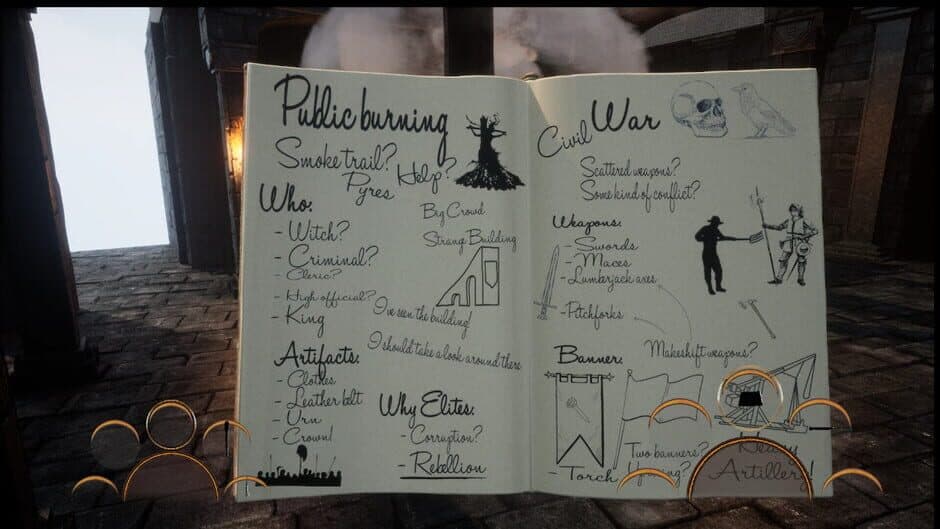 Public burning
Smoke trail?
Pyres Help?
Who:
- Witch?
- Criminal?
- Cleric?
- High official?
- King
Big Crowd
Strang Building
I've seen the building!
I should take a look around there
Artifacts:
- Clothes
- Leather belt
- Urn
- Crown!
Why Elites:
- Corruption?
- Rebellion
Civil War
Scattered weapons?
Some kind of conflict?
Weapons:
- Swords
- Maces
- Lumberjack axes
- Pitchforks
Makeshift weapons?
Banner:
- Torch
Two banners?
Heavy
Artillery!